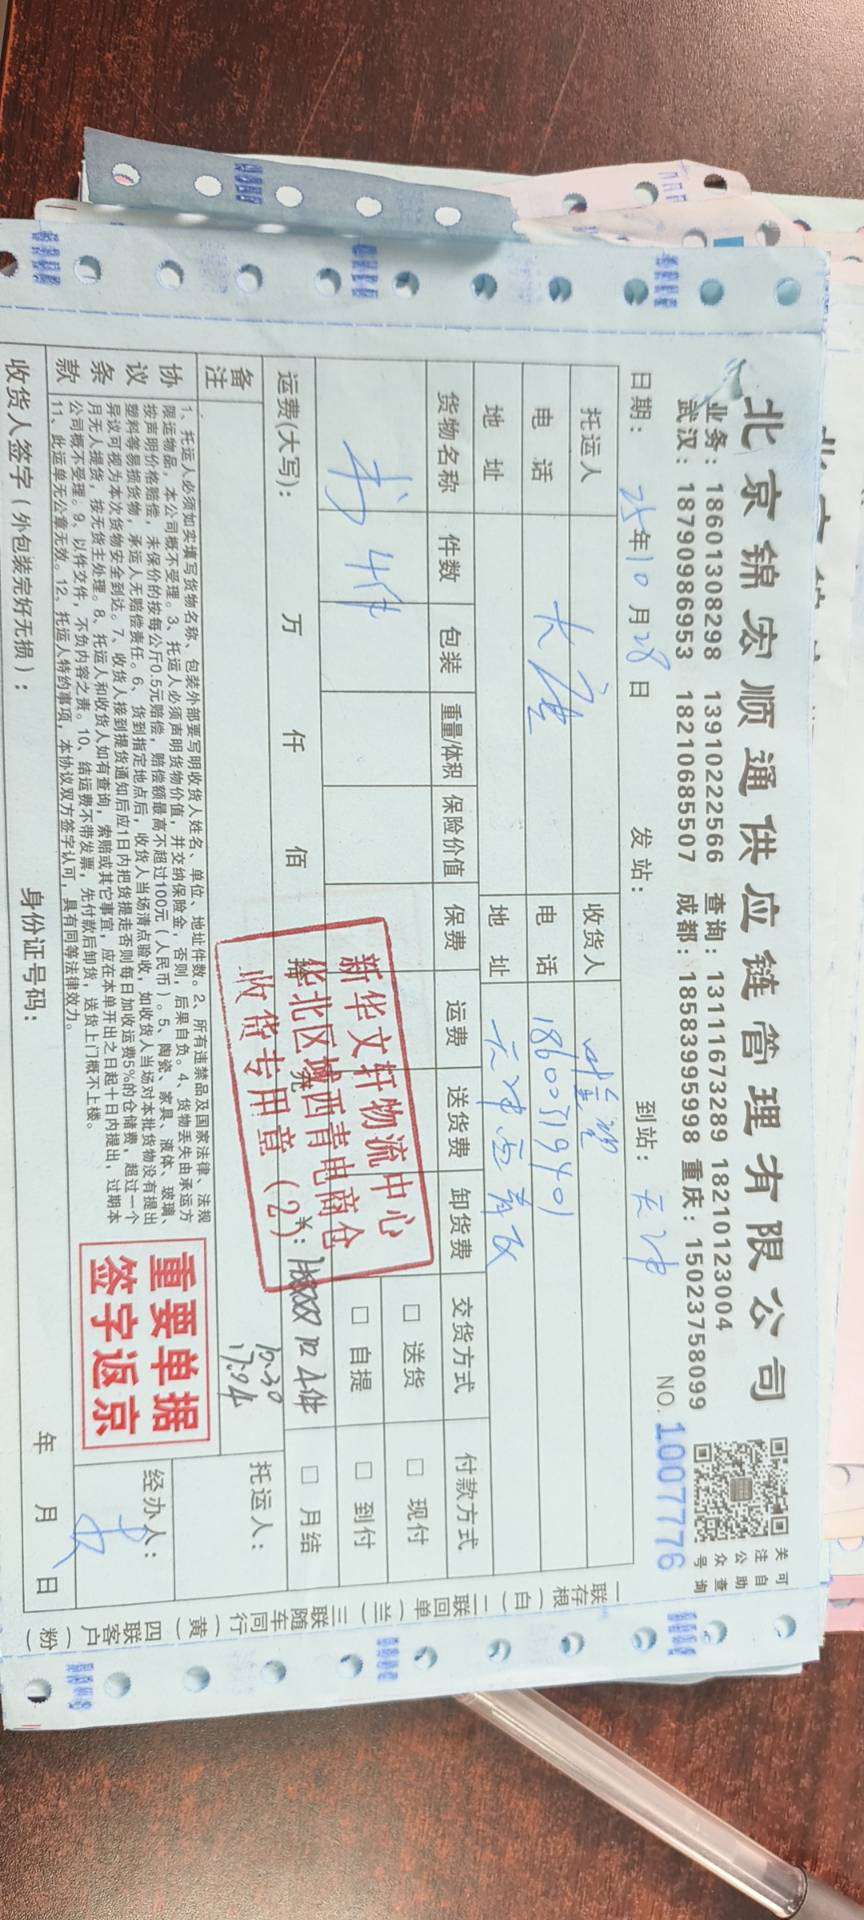 北京锦宏顺通供应链管理有限公司
业务：18601308298 13910222566 查询：13111673289 18210123004
武汉：18790986953 18210685507 成都：18583995998 重庆：15023758099
关注公众号
可自助查询
日期：25年10月28日 发站： 到站：天津 NO. 1007776
托运人 收货人
电话 大唐 电话 18600519401
地址 地址 天津西青区
货物名称 件数 包装 重量/体积 保险价值 保费 运费 送货费 卸货费 交货方式 付款方式
书 4件 □ 送货 □ 现付
□ 自提 □ 到付
运费(大写)： 万 仟 佰 拾 元 ¥： 4件 □ 月结
新华文轩物流中心
华北区域西青电商仓
收货专用章（2）
备注 10.30 托运人：
协议条款
1、托运人必须如实填写货物名称、包装外部要写明收货人姓名、单位、地址件数。2、所有违禁品及国家法律、法规
限运物品，本公司概不受理。3、托运人必须声明货物价值，并交纳保险金，否则，后果自负。4、货物丢失由承运方
按声明价格赔偿，未保价的按每公斤0.5元赔偿，赔偿额最高不超过100元（人民币）。5、陶瓷、家具、液体、玻璃、
塑料等易损货物，承运人无赔偿责任。6、货到指定地点后，收货人当场清点验收，如收货人当场对本批货物没有提出
异议可视为本次货物安全到达。7、收货人接到提货通知后应1日内把货提走否则每日加收运费5%的仓储费，超过一个
月无人提货，按无货主处理。8、托运人和收货人如有查询，索赔或其它事宜，应在本单开出之日起十日内提出，过期本
公司概不受理。9、以件交件，不负内容之责。10、结运费不带发票，先付款后卸货，送货上门概不上楼。
11、此运单无公章无效。12、托运人特约事项，本协议双方签字认可，具有同等法律效力。
重要单据
签字返京
经办人：
收货人签字（外包装完好无损）： 身份证号码： 年 月 日
一联存根（白）二联回单（兰）三联随车同行（黄）四联客户（粉）